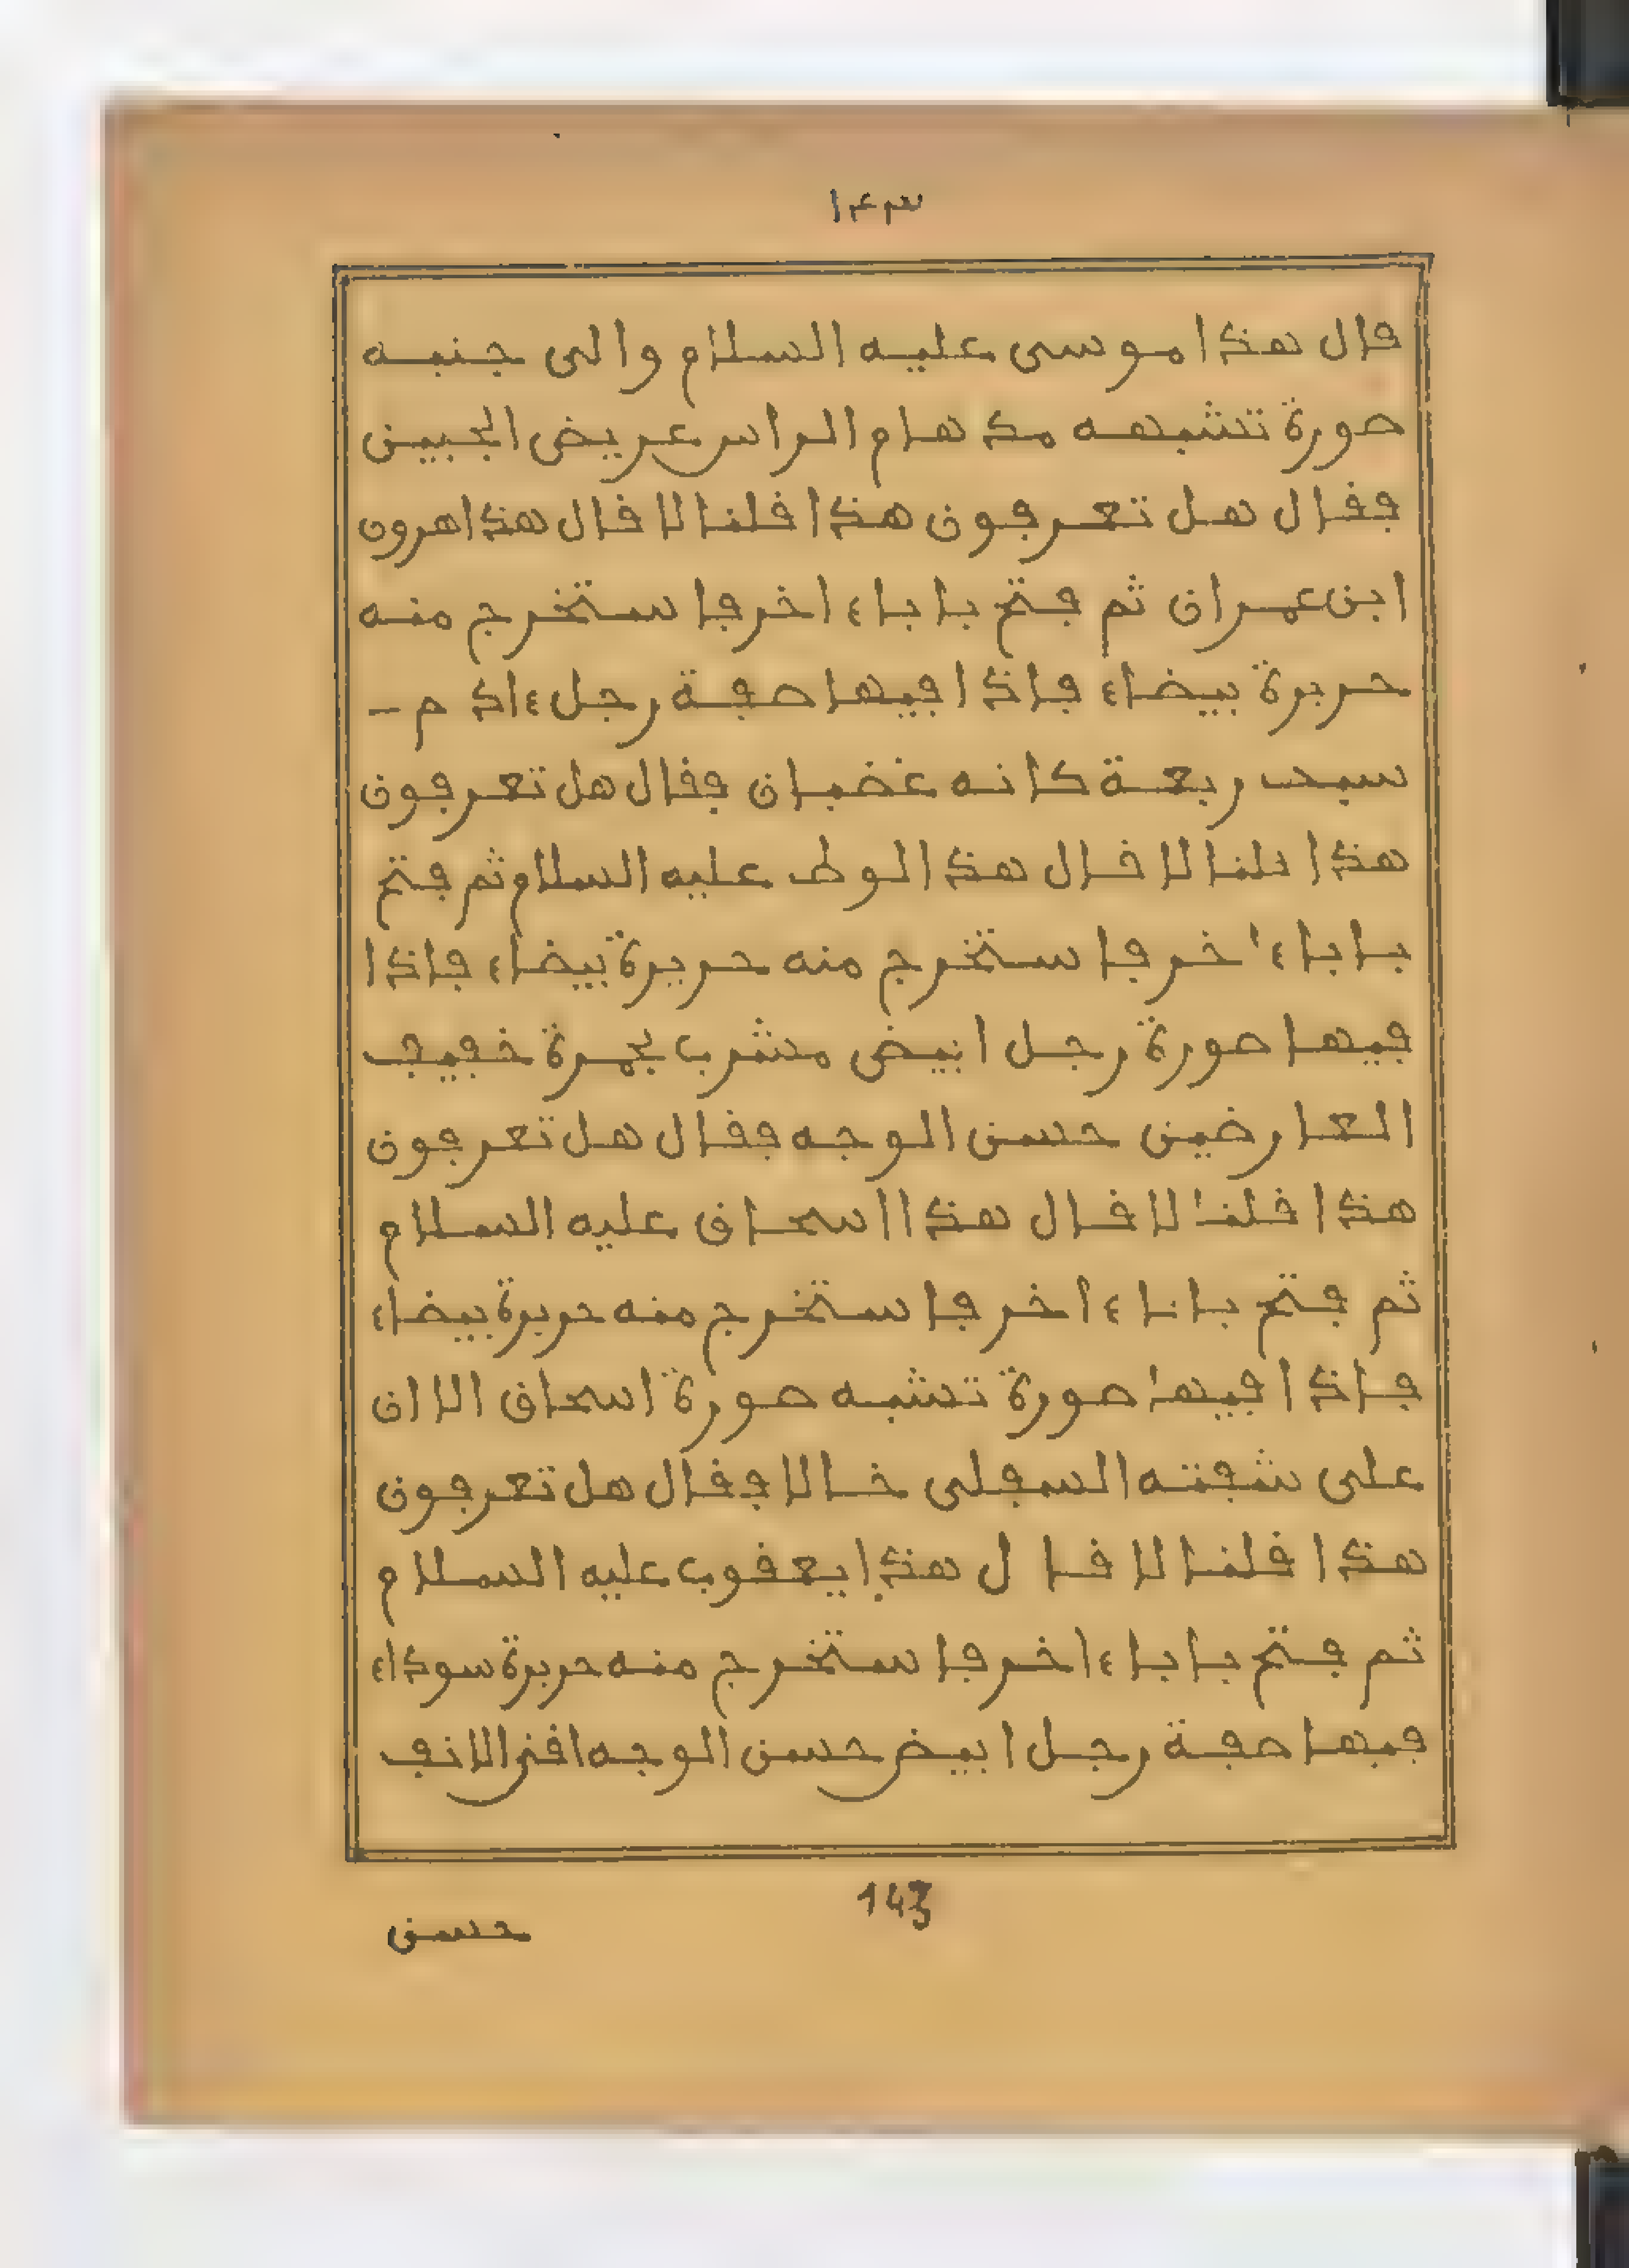 ١٤٣
قال هذا موسى عليه السلام والى جنبه
صورة تشبهه مدهام الراس عريض الجبين
فقال هل تعرفون هذا قلنا لا قال هذا هرون
ابن عمران ثم فتح بابا ءاخر فاستخرج منه
حريرة بيضاء فاذا فيها صفة رجل ءادم
سبط ربعة كانه غضبان فقال هل تعرفون
هذا قلنا لا قال هذا لوط عليه السلام ثم فتح
بابا ءاخر فاستخرج منه حريرة بيضاء فاذا
فيها صورة رجل ابيض مشرب بحمرة خفيف
العارضين حسن الوجه فقال هل تعرفون
هذا قلنا لا قال هذا اسحاق عليه السلام
ثم فتح بابا ءاخر فاستخرج منه حريرة بيضاء
فاذا فيها صورة تشبه صورة اسحاق الا ان
على شفته السفلى خالا فقال هل تعرفون
هذا قلنا لا قال هذا يعقوب عليه السلام
ثم فتح بابا ءاخر فاستخرج منه حريرة سوداء
فيها صفة رجل ابيض حسن الوجه اقنى الانف
143
حسن